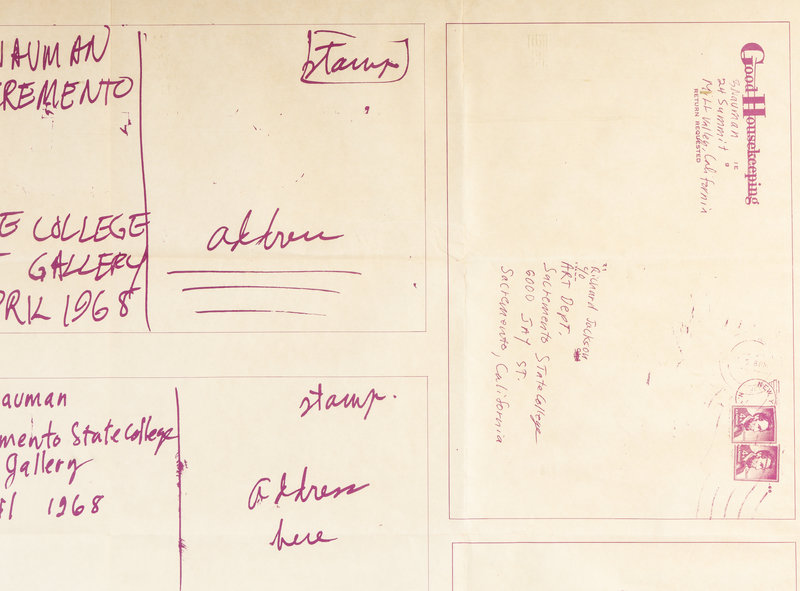 NAUMAN
CREMENTO
E COLLEGE
GALLERY
PRIL 1968
stamp
address
auman
mento State College
Gallery
1968
stamp.
address
here
Good Housekeeping
RETURN REQUESTED
Nauman
24 Summit
Mill Valley, California
Richard Jackson
c/o
ART Dept.
Sacremento State College
6000 Jay ST.
Sacremento, California
NEW Y